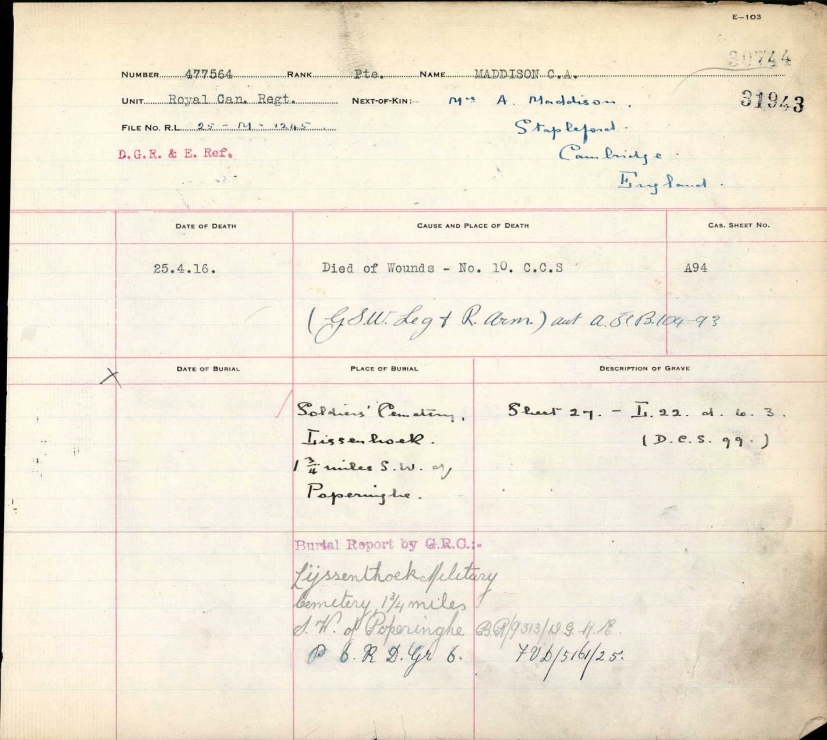 E—103
30744
NUMBER 477564 RANK Pte. NAME MADDISON C.A.
31943
UNIT Royal Can. Regt. NEXT-OF-KIN:- Mrs A. Maddison,
FILE NO. R.L. 25 - M - 1245 Stapleford.
D.G.R. & E. Ref. Cambridge.
England.
DATE OF DEATH CAUSE AND PLACE OF DEATH CAS. SHEET NO.
25.4.16. Died of Wounds - No. 10. C.C.S A94
(G.S.W. Leg & R. Arm.)
DATE OF BURIAL PLACE OF BURIAL DESCRIPTION OF GRAVE
X
Soldiers' Cemetery, Sheet 27. - L. 22. d. 6. 3.
Lissenhoek. (D.C.S. 99.)
1 3/4 miles S.W. of
Poperinghe.
Burial Report by G.R.C.:-
Lijssenthoek Military
Cemetery, 1 3/4 miles
S.W. of Poperinghe
P 6. R D. Gr 6.